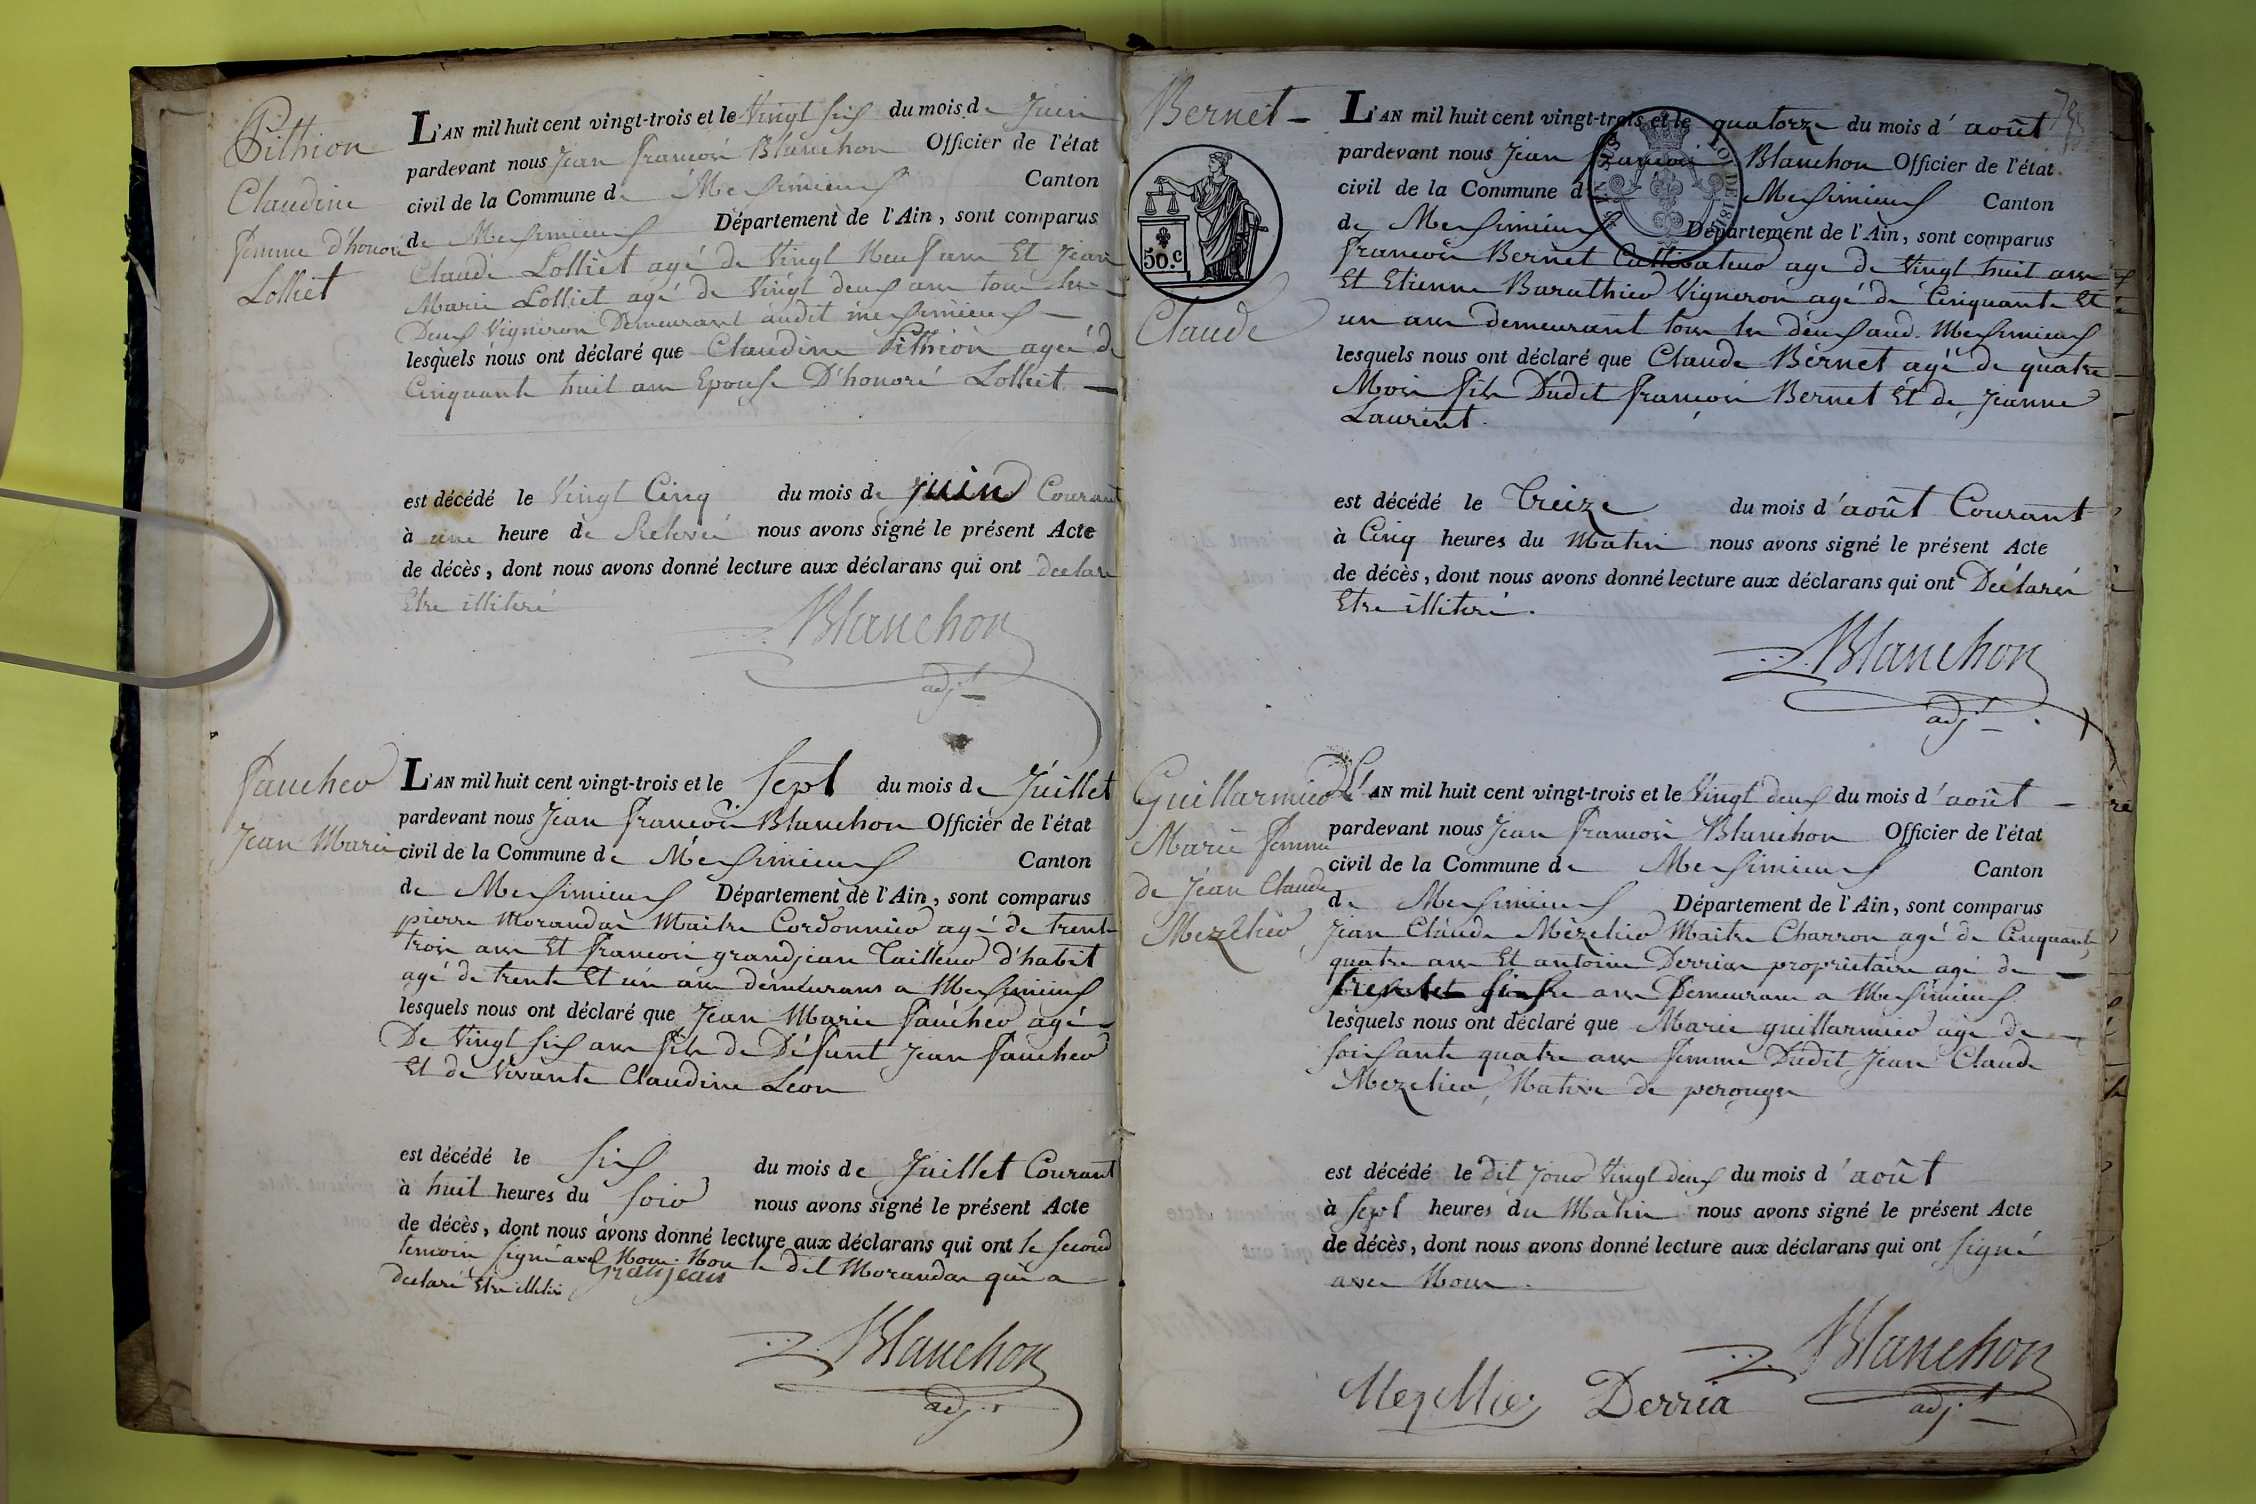 Pithion
Claudine
femme d'honoré
Lolliet
L'AN mil huit cent vingt-trois et le Vingt six du mois de Juin
pardevant nous Jean françois Blanchon Officier de l'état
civil de la Commune de Messimieux Canton
de Messimieux Département de l'Ain, sont comparus
Claude Lolliet agé de Vingt Neuf ans Et Jean
Marie Lolliet agé de Vingt deux ans tous les
Deux Vigneron Demeurant audit messimieux
lesquels nous ont déclaré que Claudine Pithion ageé de
Cinquante huit ans Epouse D'honoré Lolliet
est décédé le Vingt Cinq du mois de juin Courant
à une heure de Relevée nous avons signé le présent Acte
de décès, dont nous avons donné lecture aux déclarans qui ont declare
Etre illiteré
Blanchon
adj.t
faucher
Jean Marie
L'AN mil huit cent vingt-trois et le Sept du mois de Juillet
pardevant nous Jean françois Blanchon Officier de l'état
civil de la Commune de Messimieux Canton
de Messimieux Département de l'Ain, sont comparus
pierre Morandas Maitre Cordonnier agé de trente
trois ans Et françois grandjean Tailleur d'habit
agé de trente Et un ans demeurans a Messimieux
lesquels nous ont déclaré que Jean Marie faucher agé
De Vingt six ans fils de Défunt Jean faucher
Et de Vivante Claudine Leon
est décédé le Six du mois de Juillet Courant
à huit heures du soir nous avons signé le présent Acte
de décès, dont nous avons donné lecture aux déclarans qui ont le second
temoin signé avec Nous Non le dit Morandas qui a
declaré Etre illitéré Granjean
Blanchon
adj.t
Bernet
Claude
50.c
LOI DE 1816
L'AN mil huit cent vingt-trois et le quatorze du mois d'août
pardevant nous Jean françois Blanchon Officier de l'état
civil de la Commune de Messimieux Canton
de Messimieux Département de l'Ain, sont comparus
françois Bernet Cultivateur agé de Vingt huit ans
Et Etienne Barathier Vigneron agé de Cinquante Et
un ans demeurant tous les deux aud. Messimieux
lesquels nous ont déclaré que Claude Bernet agé de quatre
Mois fils Dudit françois Bernet Et de Jeanne
Laurent.
est décédé le Treize du mois d'août Courant
à Cinq heures du Matin nous avons signé le présent Acte
de décès, dont nous avons donné lecture aux déclarans qui ont Déclarés
Etre illiteré.
Blanchon
adj.t
Guillarmier
Marie femme
de Jean Claude
Mezelier
L'AN mil huit cent vingt-trois et le Vingt deux du mois d'août
pardevant nous Jean françois Blanchon Officier de l'état
civil de la Commune de Messimieux Canton
de Messimieux Département de l'Ain, sont comparus
Jean Claude Mezelier Maitre Charron agé de Cinquante
quatre ans Et antoine Derrias propriétaire agé de
ans Demeurans a Messimieux
lesquels nous ont déclaré que Marie guillarmier agé de
soixante quatre ans femme Dudit Jean Claude
Mezelier, Native de perouges
est décédé le dit jour Vingt deux du mois d'août
à Sept heures du Matin nous avons signé le présent Acte
de décès, dont nous avons donné lecture aux déclarans qui ont signé
avec Nous.
Blanchon
adj.t
Derria